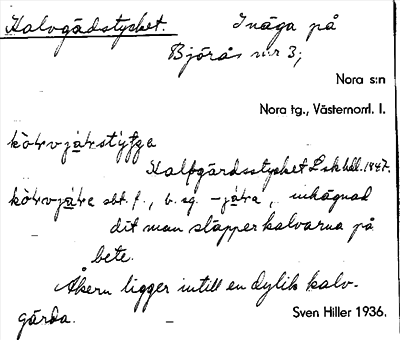 Kalvgädstycket. Inäga på
Björås n:r 3;
Nora s:n
Nora tg., Västernorrl. l.
Kalfgärdsstycket Lskhdl. 1847.
sbt. f., b. sg. -jära, inhägnad
dit man släpper kalvarna på
bete.
Åkern ligger intill en dylik kalv-
gärda. Sven Hiller 1936.